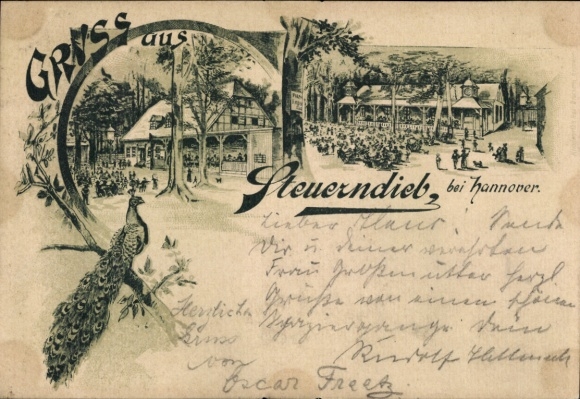 GRUSS aus
Steuerndieb, bei Hannover.
Lieber Hans! Sende
Dir u deiner verehrten
Frau Großmutter herzl.
Grüße von einem schönen
Spaziergange dein
Rudolf
Herzlichen
Gruss
von
Oscar Freetz.